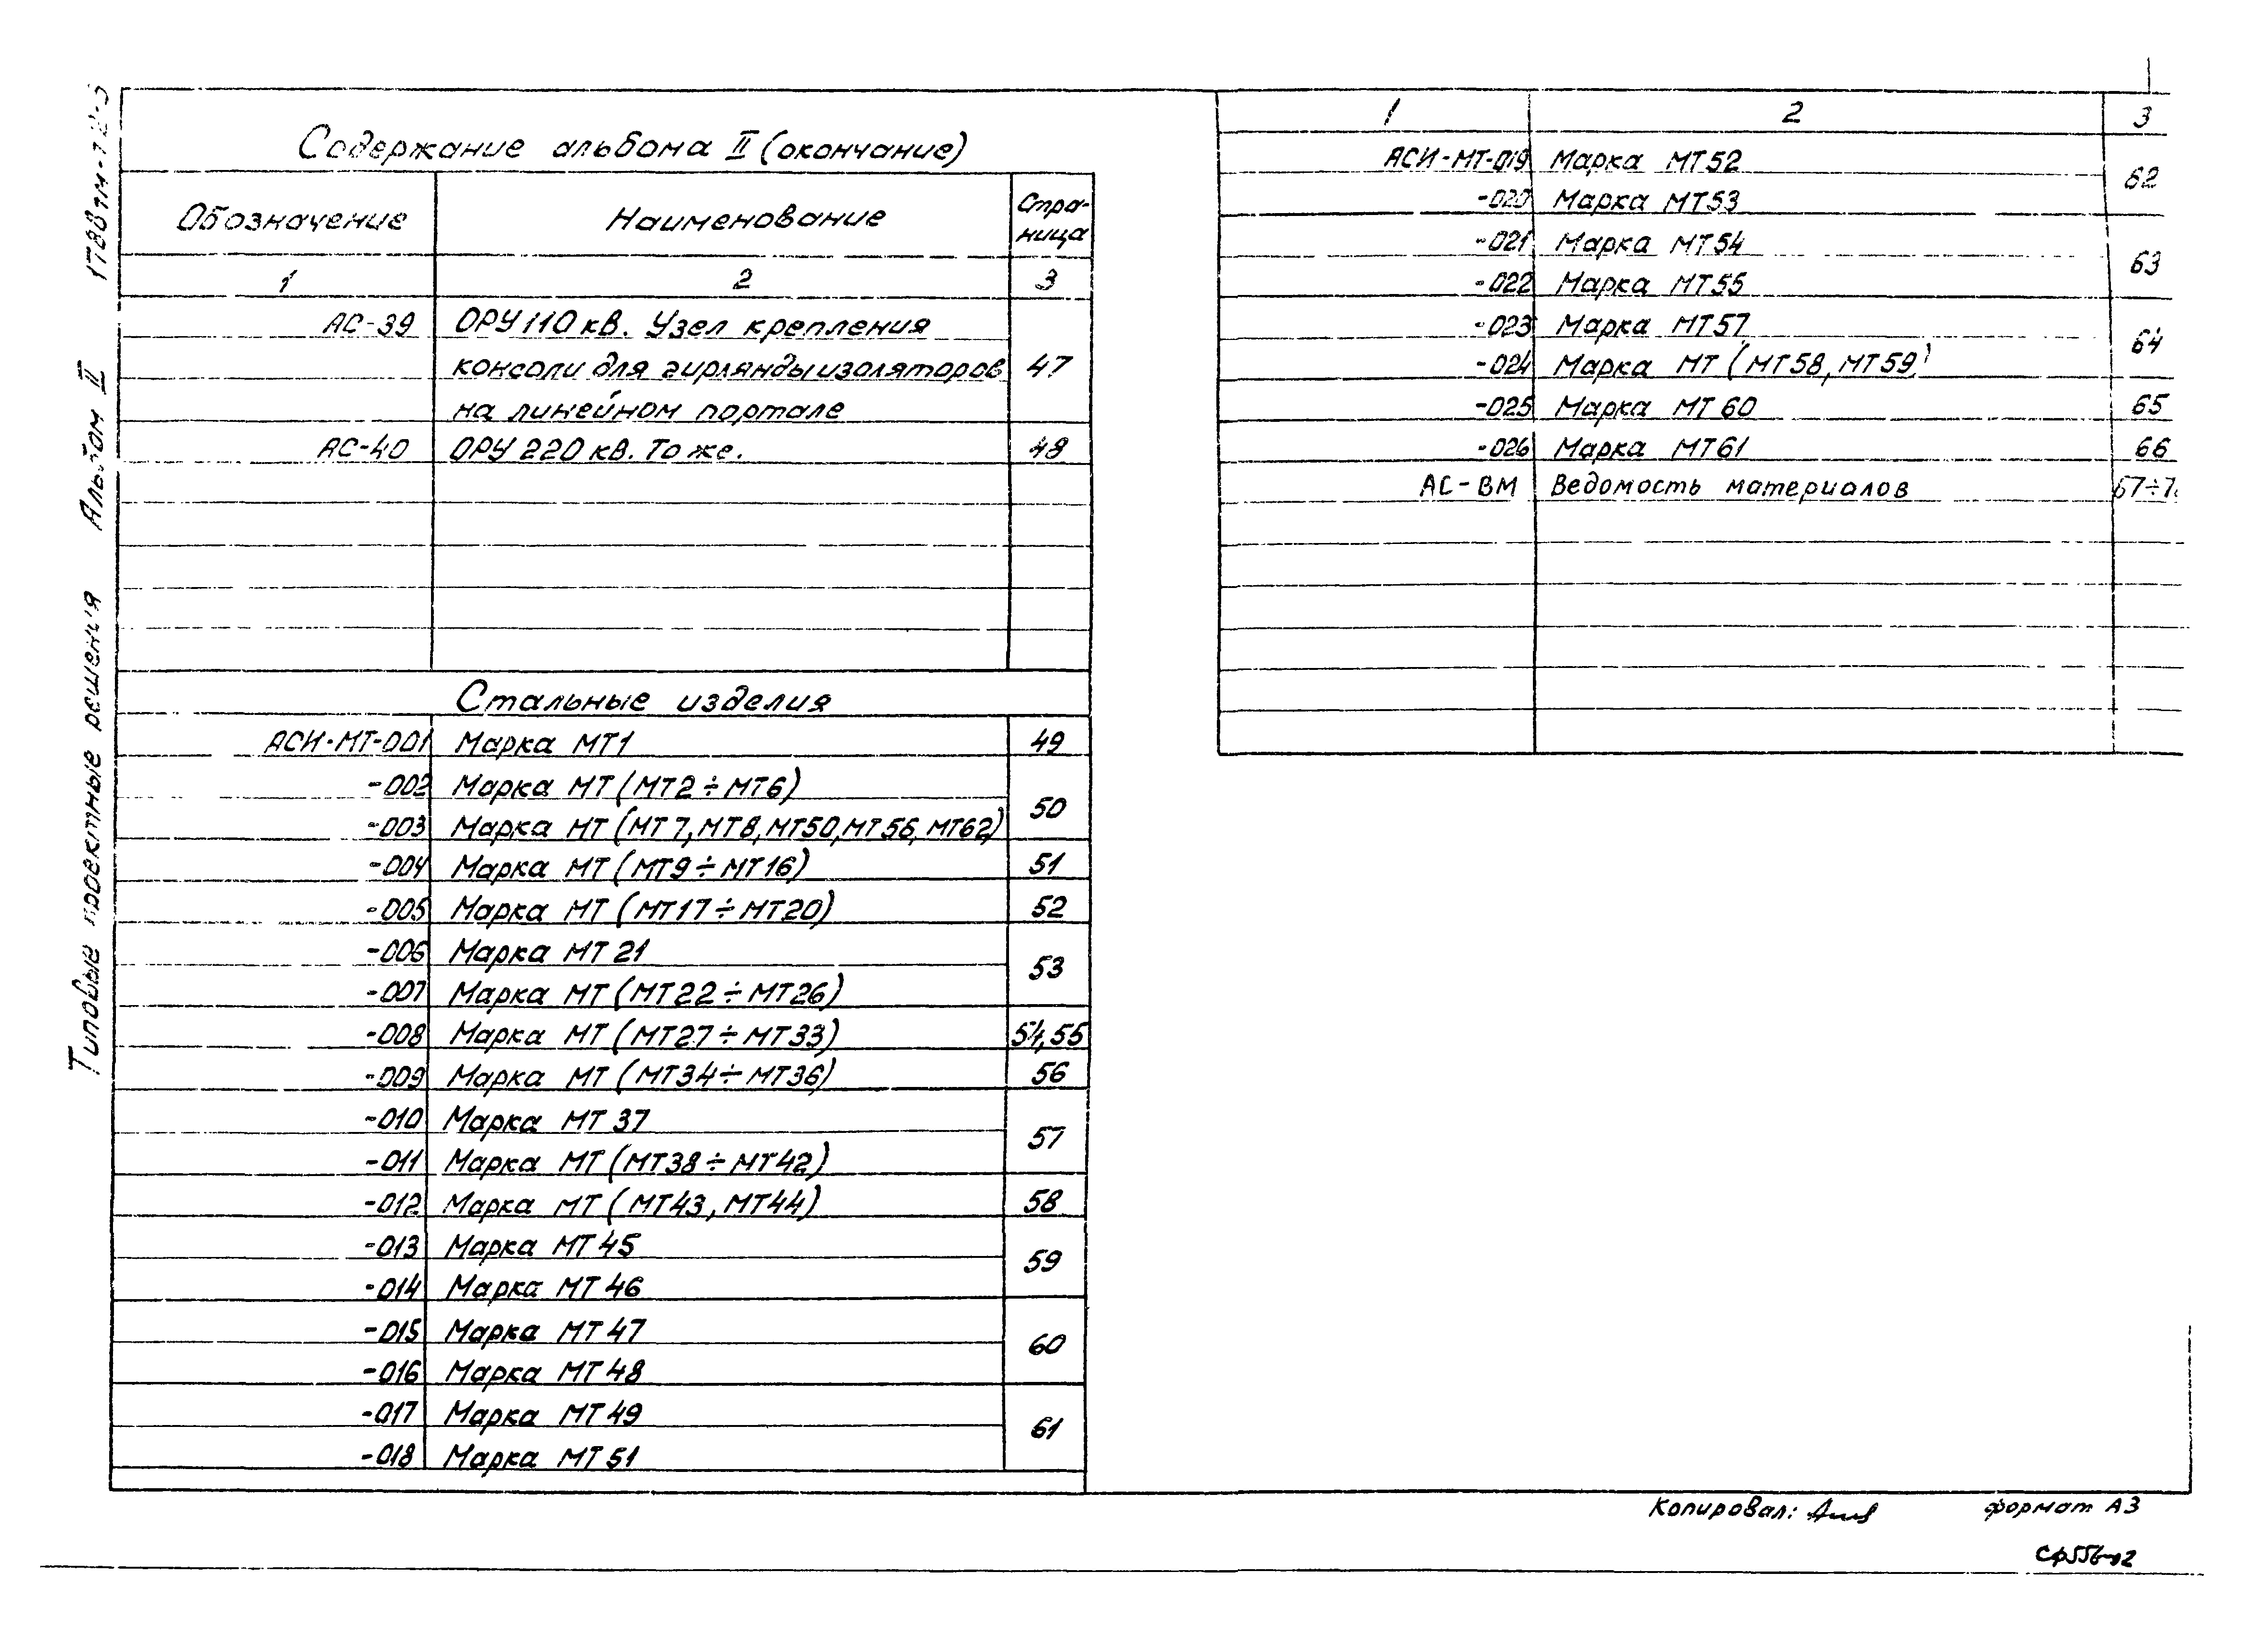 Содержание альбома II (окончание)
Обозначение Наименование Стра-
ница
1 2 3
АС-39 ОРУ 110 кВ. Узел крепления
консоли для гирлянды изоляторов 47
на линейном портале
АС-40 ОРУ 220 кВ. То же. 48
Стальные изделия
АСИ-МТ-001 Марка МТ1 49
-002 Марка МТ (МТ2÷МТ6) 50
-003 Марка МТ (МТ7, МТ8, МТ50, МТ56, МТ62)
-004 Марка МТ (МТ9÷МТ16) 51
-005 Марка МТ (МТ17÷МТ20) 52
-006 Марка МТ 21 53
-007 Марка МТ (МТ22÷МТ26)
-008 Марка МТ (МТ27÷МТ33) 54,55
-009 Марка МТ (МТ34÷МТ36) 56
-010 Марка МТ 37 57
-011 Марка МТ (МТ38÷МТ42)
-012 Марка МТ (МТ43, МТ44) 58
-013 Марка МТ 45 59
-014 Марка МТ 46
-015 Марка МТ 47 60
-016 Марка МТ 48
-017 Марка МТ 49 61
-018 Марка МТ 51
1 2 3
АСИ-МТ-019 Марка МТ52 62
-020 Марка МТ53
-021 Марка МТ54 63
-022 Марка МТ55
-023 Марка МТ57 64
-024 Марка МТ (МТ58, МТ59)
-025 Марка МТ 60 65
-026 Марка МТ61 66
АС-ВМ Ведомость материалов
Типовые проектные решения Альбом II
Копировал: формат А3